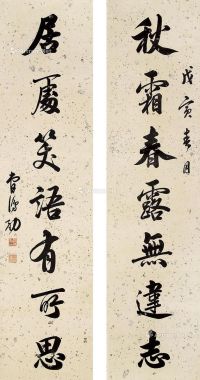 戊寅春月
秋霜春露無違志
居處笑語有所思
曹鴻勛